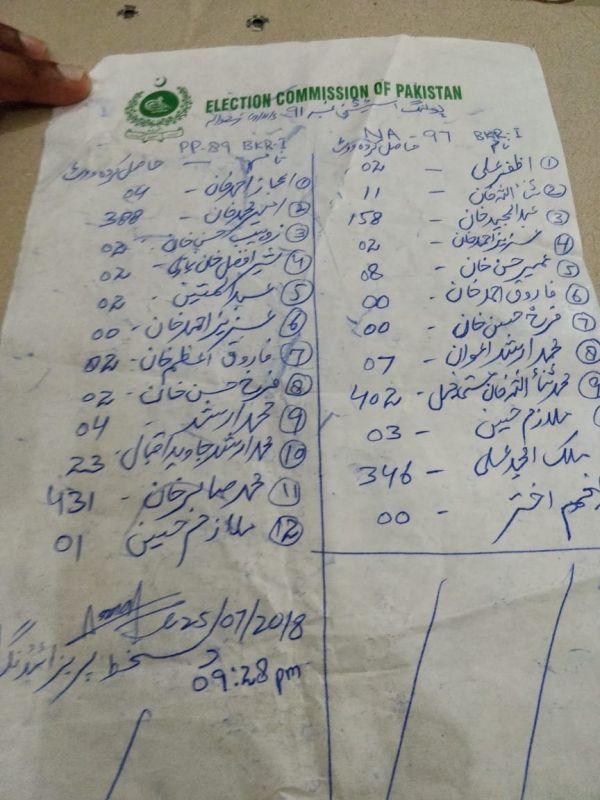 ELECTION COMMISSION OF PAKISTAN
پولنگ اسٹیشن نمبر 91
NA-97 BKR-I
نام حاصل کردہ ووٹ
① اظفر علی - 02
② ثناء اللہ خان - 11
③ عبدالمجید خان - 158
④ عزیز احمد خان - 02
⑤ عمیر حسن خان - 08
⑥ فاروق احمد خان - 00
⑦ فرخ حسین خان - 00
⑧ محمد ارشد اعوان - 07
⑨ محمد ثناء اللہ خان مستی خیل - 402
ملازم حسین - 03
ملک امجد علی - 346
انجم اختر - 00
PP-89 BKR-I
نام حاصل کردہ ووٹ
① اعجاز احمد خان - 04
② امیر محمد خان - 388
③ زوہیب حسن خان - 02
④ شیر افضل خان - 02
⑤ عبدالمتین - 02
⑥ عزیز احمد خان - 00
⑦ فاروق اعظم خان - 02
⑧ فرخ حسین خان - 02
⑨ محمد ارشد - 04
⑩ محمد ارشد جاوید اقبال - 23
⑪ محمد صابر خان - 431
⑫ ملازم حسین 01
25/07/2018
دستخط پریزائیڈنگ
09:28 pm